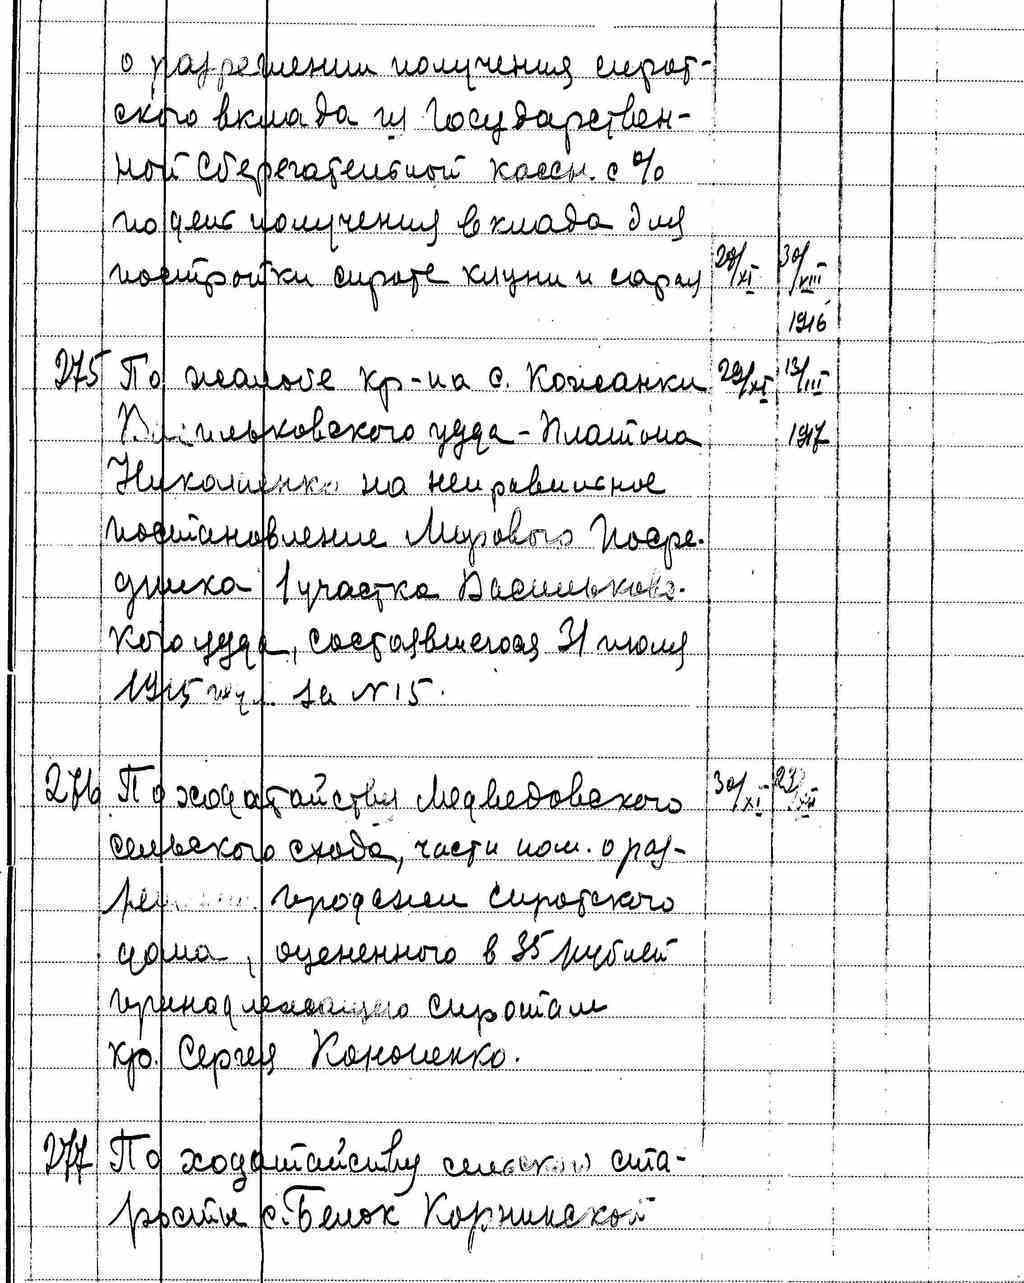 о разрешении получения сирот-
ского вклада из Государствен-
ной Сберегательной кассы с %
по день получения вклада для
постройки сироте клуни и сарая 29/XI 30/VIII
1916
275 По жалобе кр-на с. Кожанки 29/XI 13/III
Васильковского уезда - Платона 1917
Николаенко на неправильное
постановление Мирового Посре-
дника 1 участка Васильковс-
кого уезда, состоявшегося 31 июля
1915 года за № 15.
276 По ходатайству Медведовского 30/XI 23/XII
сельского схода, части пом. о раз-
решении продажи сиротского
дома, оцененного в 35 рублей
принадлежащего сиротам
кр. Сергея Кононенко.
277 По ходатайству сельского ста-
росты с. Белок Корнинской